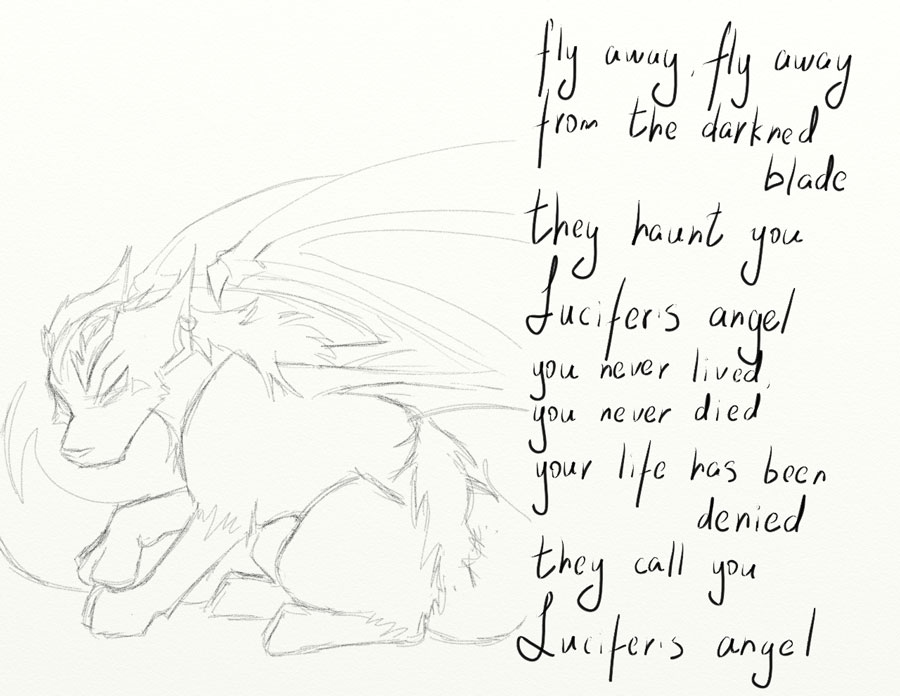 fly away, fly away
from the darkned
blade
they haunt you
Lucifer's angel
you never lived,
you never died
your life has been
denied
they call you
Lucifer's angel